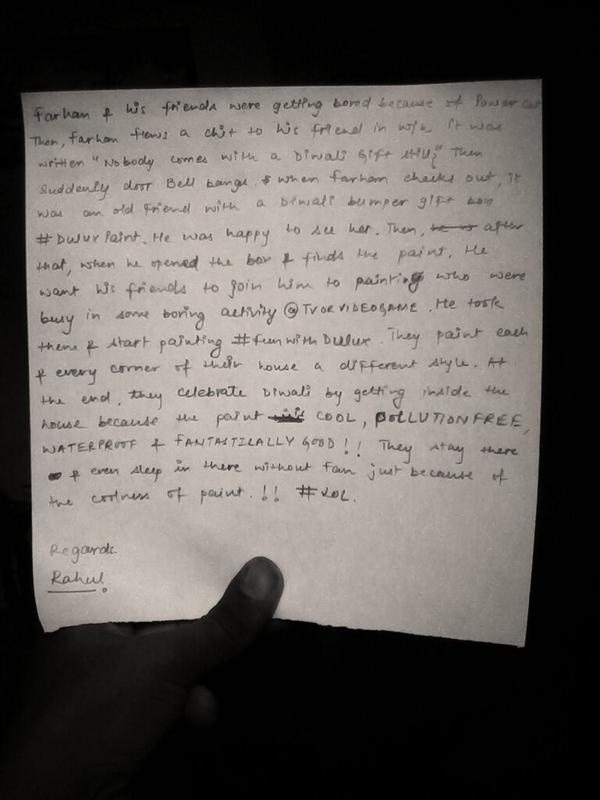 Farhan & his friends were getting bored because of Power cut
Then, Farhan flews a chit to his friend in it was
written "Nobody comes with a Diwali Gift still;" Then
Suddenly door Bell bangs, & when Farhan checks out, it
was an old friend with a Diwali bumper gift box
#DuluxPaint. He was happy to see her. Then, after
that, when he opened the box & finds the paint. He
want his friends to join him to painting who were
busy in some boring activity @TVORVIDEOGAME. He took
them & start painting #funwithDulux. They paint each
& every corner of their house a different style. At
the end, they celebrate Diwali by getting inside the
house because the paint COOL, POLLUTIONFREE,
WATERPROOF & FANTASTICALLY GOOD!! They stay there
& even sleep in there without fan just because of
the coolness of paint.!! #LOL.
Regards
Rahul.